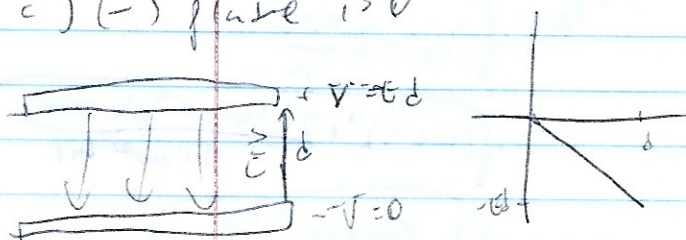 c) (-) plate is 0
+ V = Ed
E d d
- V = 0
-Ed